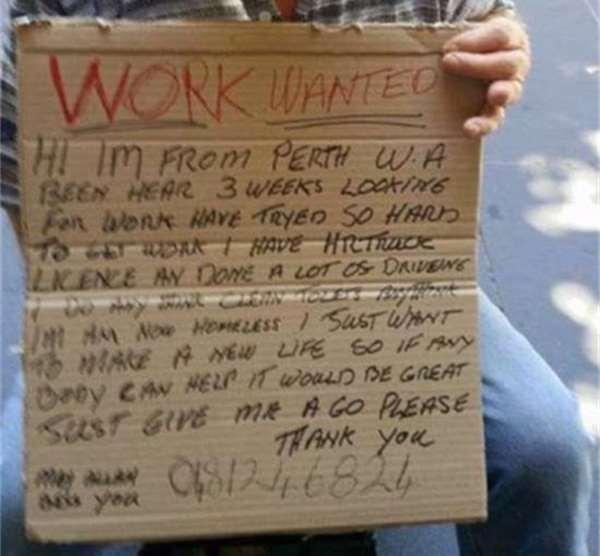 WORK WANTED
HI IM FROM PERTH W.A
BEEN HEAR 3 WEEKS LOOKING
FOR WORK HAVE TRYED SO HARD
TO GET WORK I HAVE HR TRUCK
LICENCE AN DONE A LOT OF DRIVEING
I DO ANY CLEAN TOLETS
IM NOW HOMELESS I JUST WANT
TO MAKE A NEW LIFE SO IF ANY
BODY CAN HELP IT WOULD BE GREAT
JUST GIVE ME A GO PLEASE
THANK YOU
MAY ALLAH
BLESS YOU